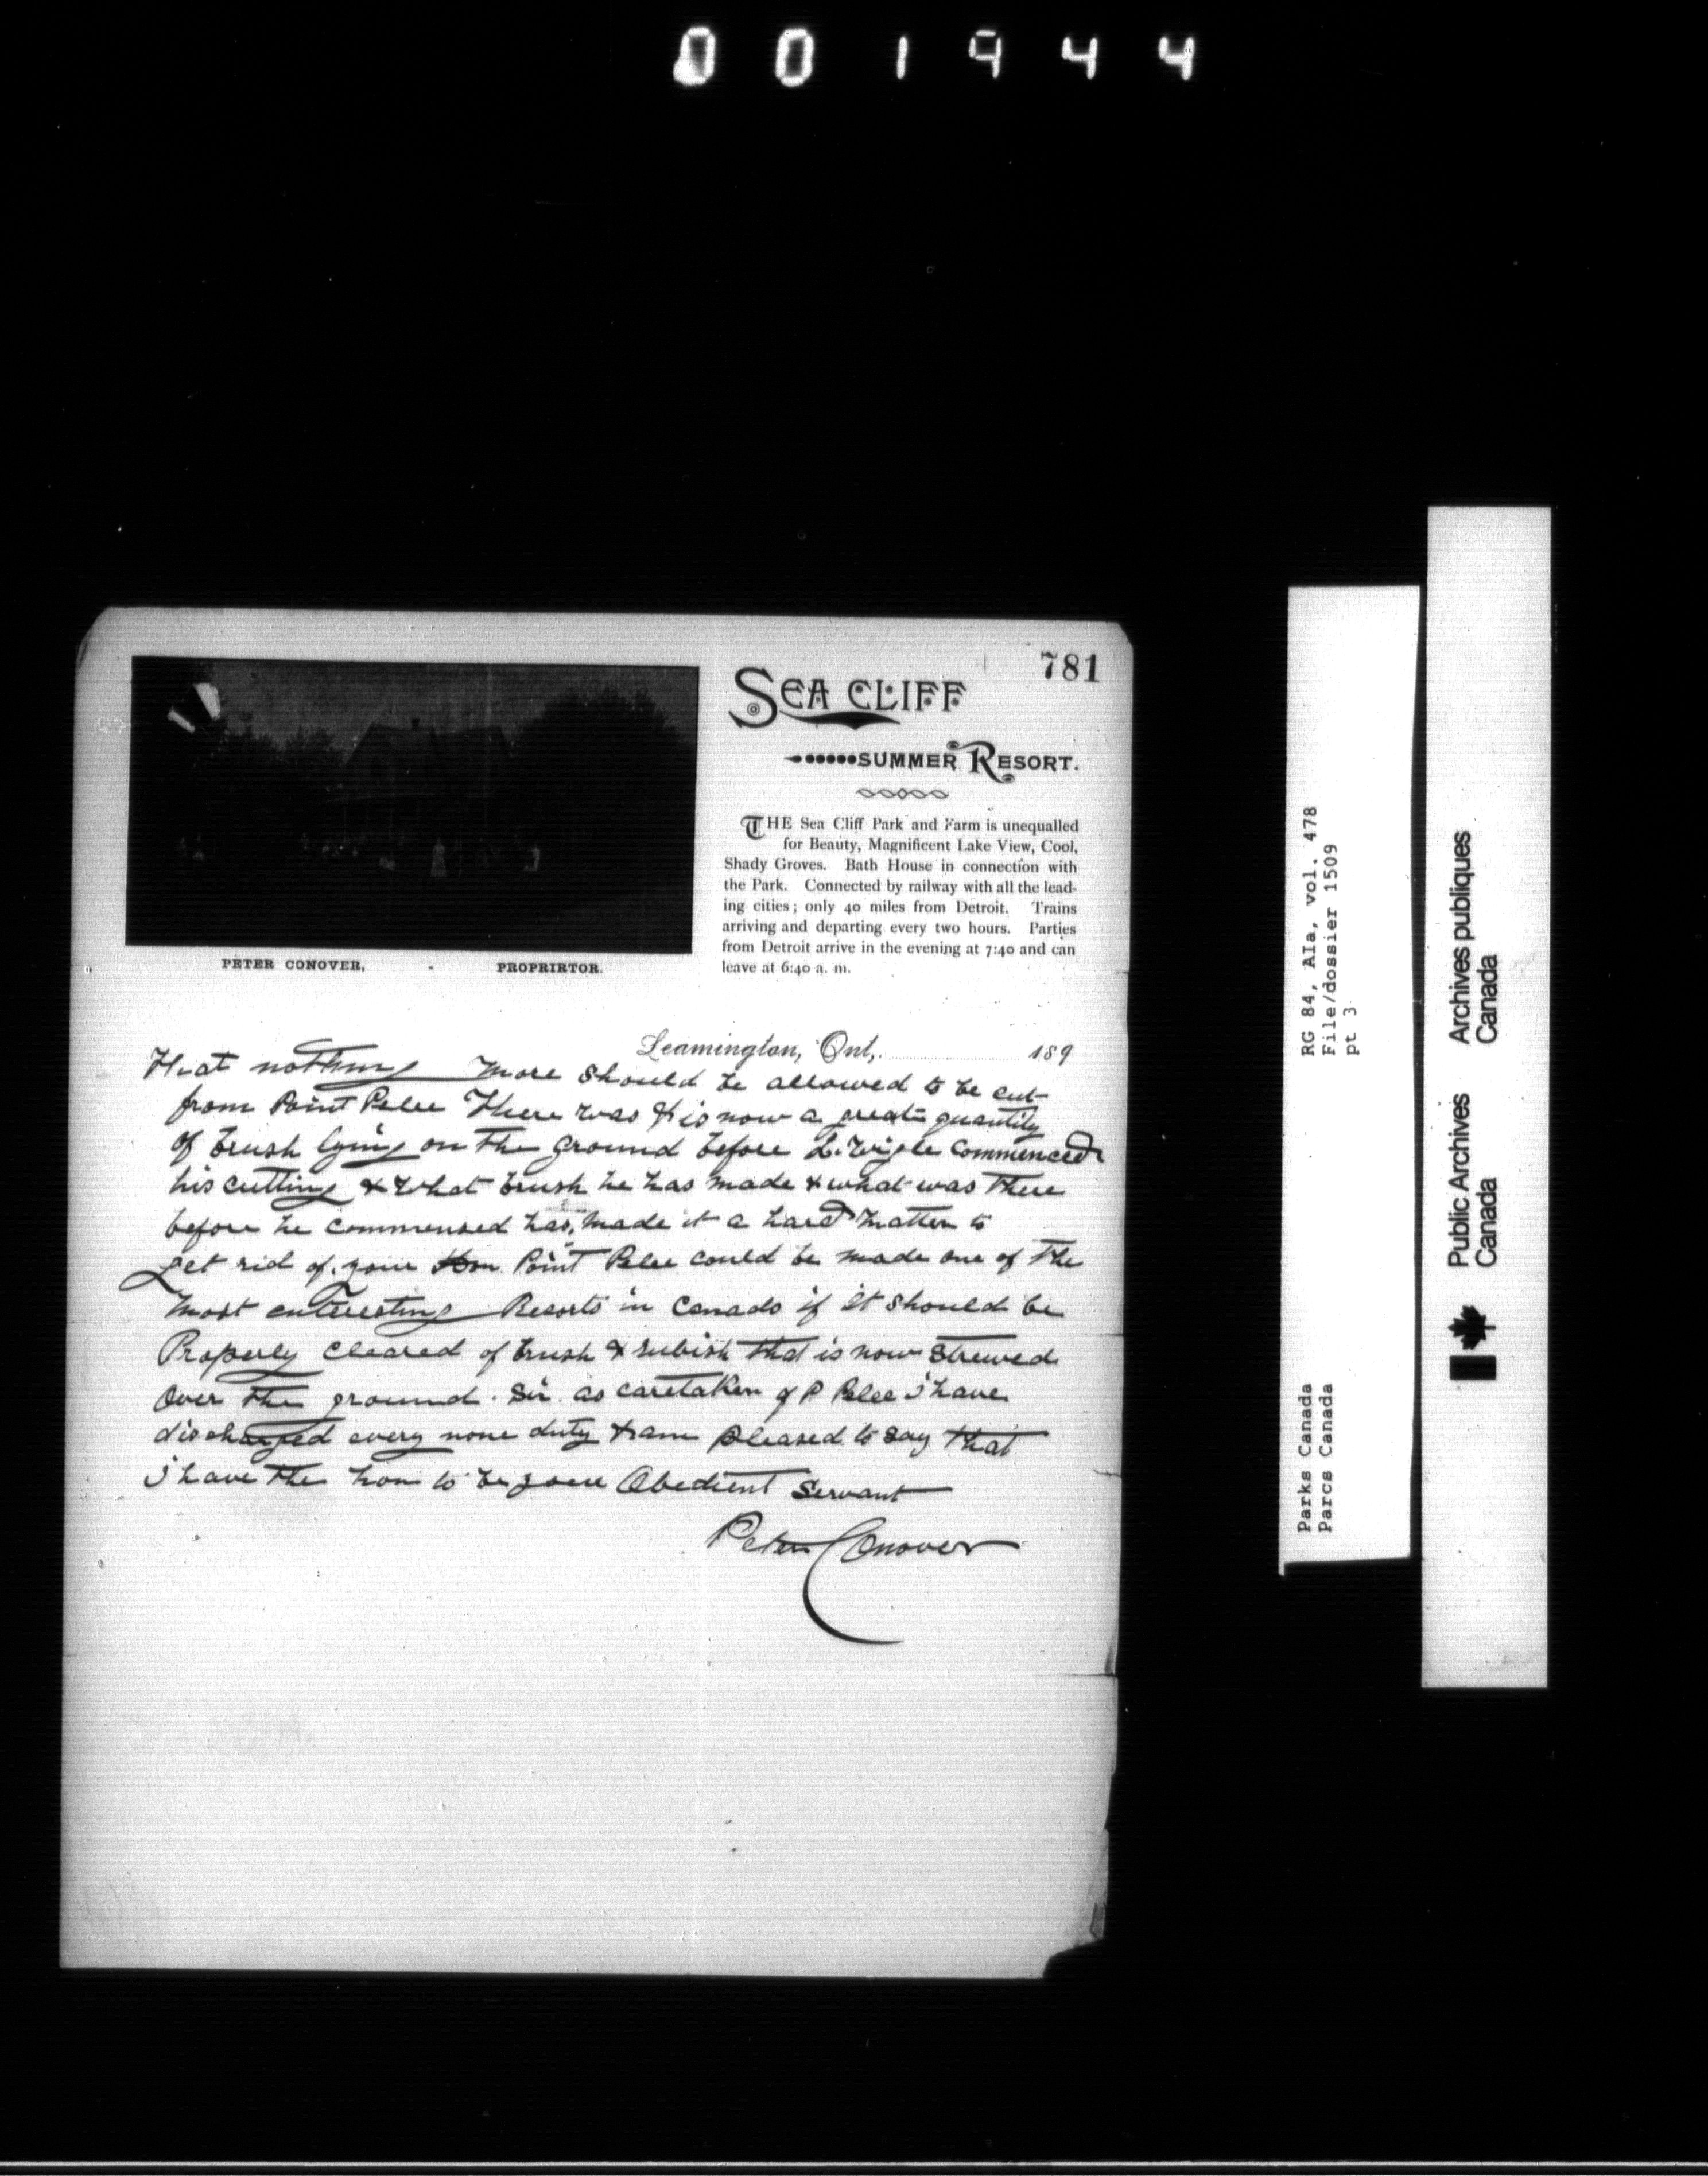 001944
781
SEA CLIFF
SUMMER RESORT.
THE Sea Cliff Park and Farm is unequalled
for Beauty, Magnificent Lake View, Cool,
Shady Groves. Bath House in connection with
the Park. Connected by railway with all the lead-
ing cities; only 40 miles from Detroit. Trains
arriving and departing every two hours. Parties
from Detroit arrive in the evening at 7:40 and can
leave at 6:40 a. m.
PETER CONOVER, - PROPRIETOR.
Leamington, Ont, 189
That nothing more should be allowed to be cut
from Point Pelee There was & is now a great quantity
of brush lying on the ground before L. Wigle Commenced
his cutting & what brush he has made & what was there
before he commensed has, made it a hard matter to
get rid of, your Hon Point Pelee could be made one of the
most enteresting Resorts in Canada if it should be
Properly cleared of brush & rubish that is now strewed
over the ground. Sir as caretaker of P Pelee i have
discharged every none duty & am pleased to say that
i have the hon to be youre Obedient Servant
Peter Conover
RG 84, AIa, vol. 478
File/dossier 1509
pt 3
Parks Canada
Parcs Canada
Public Archives
Canada
Archives publiques
Canada